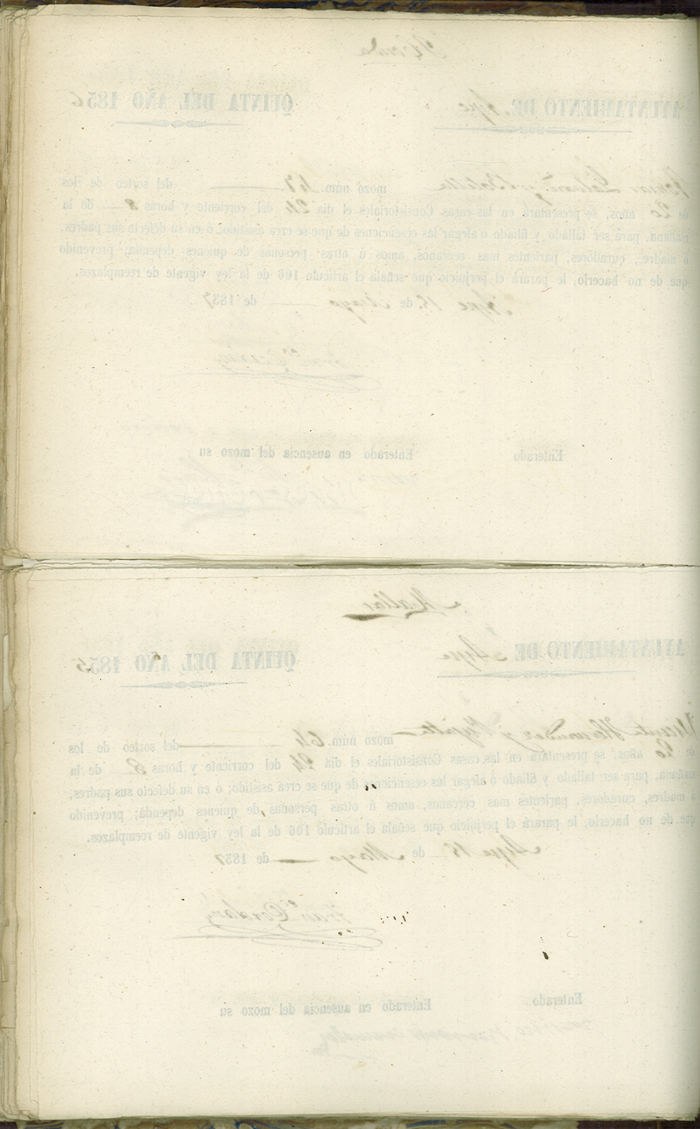 AYUNTAMIENTO DE Aspe QUINTA DEL AÑO 1856
mozo núm. 47 del sorteo de los
de 20 años, se presentará en las casas Consistoriales el dia 24 del corriente y horas 8 de la
mañana, para ser tallado y filiado ó alegar las esenciones de que se crea asistido; ó en su defecto sus padres,
ó madre, curadores, parientes mas cercanos, amos ú otras personas de quienes dependa; prevenido
que de no hacerlo, le parará el perjuicio que señala el artículo 106 de la ley vigente de reemplazos.
Aspe 18 de Mayo de 1857
Enterado Enterado en ausencia del mozo su
AYUNTAMIENTO DE Aspe QUINTA DEL AÑO 1855
Vicente mozo núm. 64 del sorteo de los
de 20 años, se presentará en las casas Consistoriales el dia 24 del corriente y horas 8 de la
mañana, para ser tallado y filiado ó alegar las esenciones de que se crea asistido; ó en su defecto sus padres,
ó madres, curadores, parientes mas cercanos, amos ú otras personas de quienes dependa; prevenido
que de no hacerlo, le parará el perjuicio que señala el artículo 106 de la ley vigente de reemplazos.
Aspe 18 de Mayo de 1857
Enterado Enterado en ausencia del mozo su